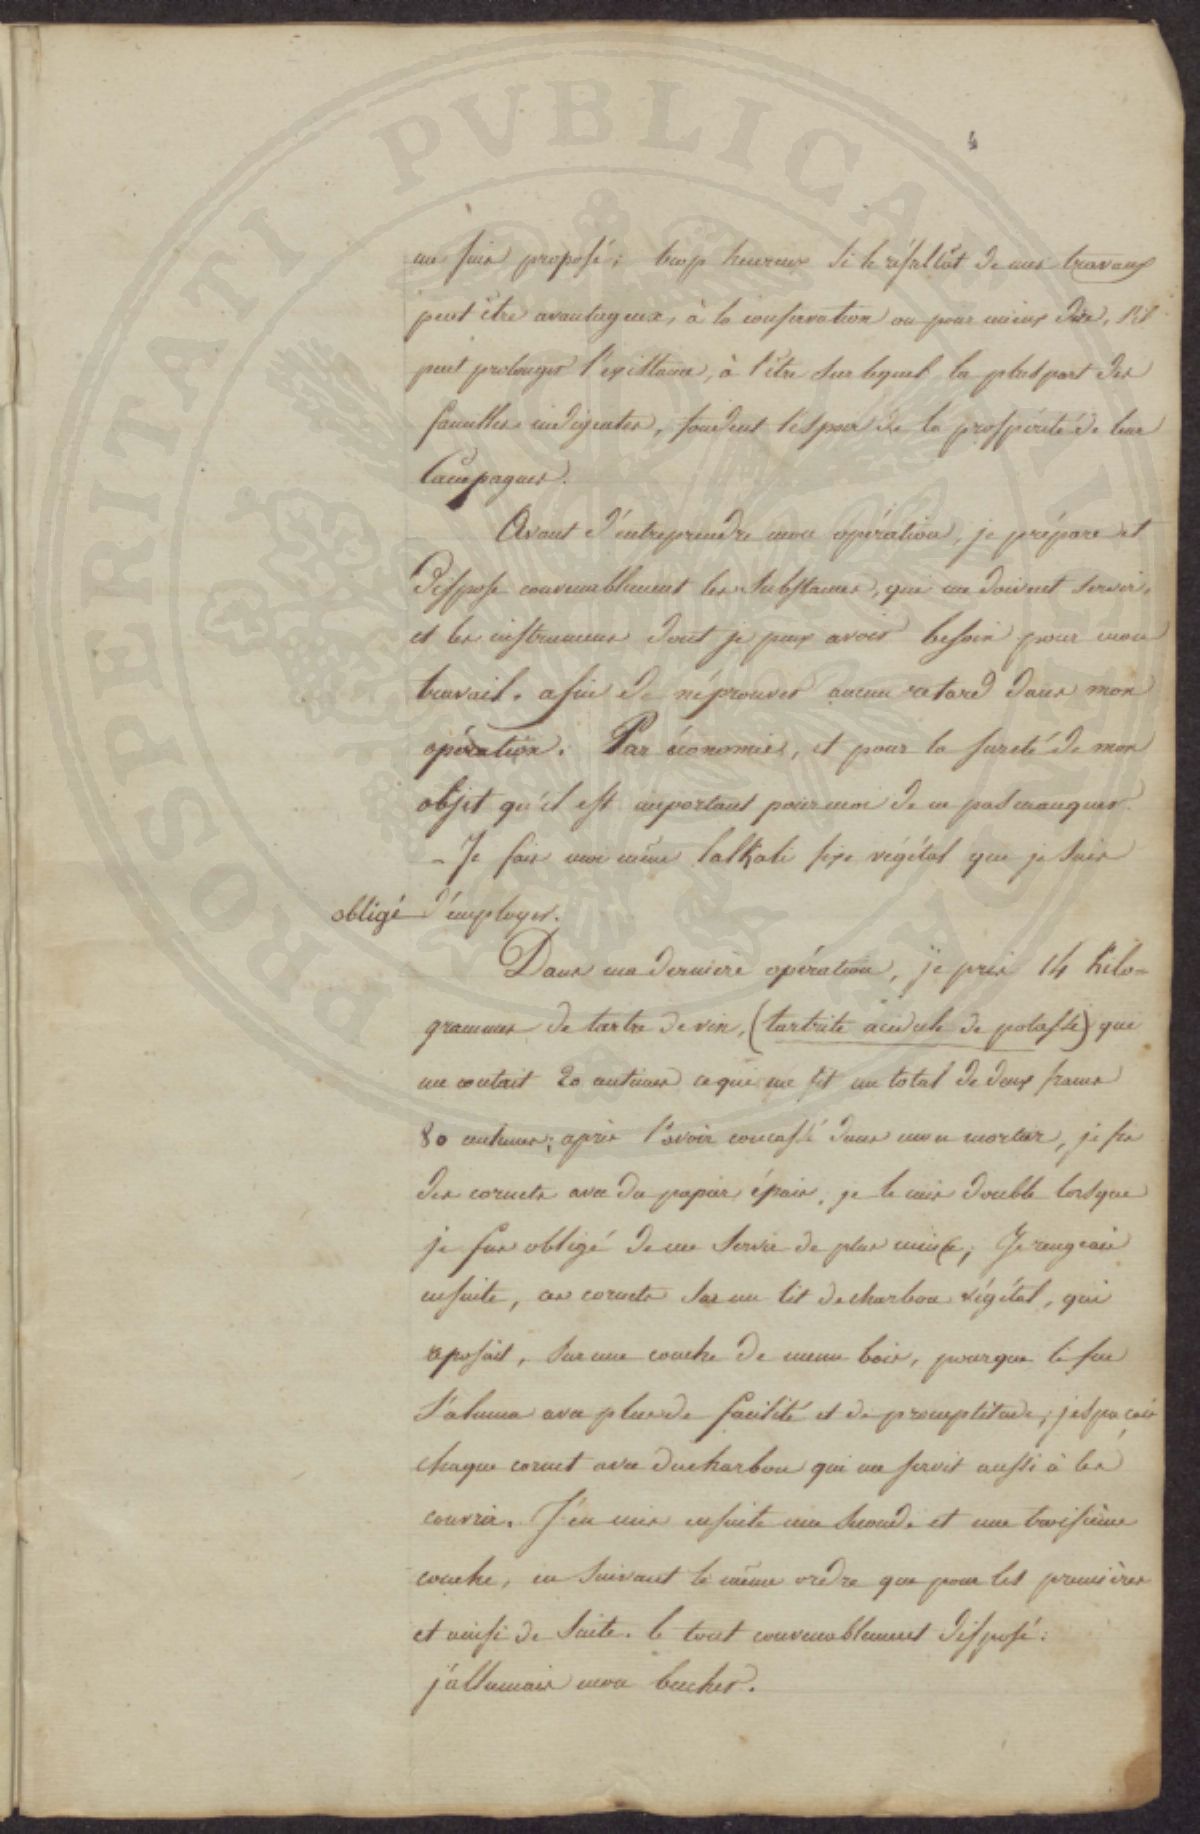 4
me suis proposé; trop heureux si le résultat de mes travaux
peut être avantageux, à la conservation ou pour mieux dire, s'il
peut prolonger l'existance, à l'être sur lequel la pluspart des
familles indigentes, fondent l'éspoir de la prospérité de leur
Campagnes.
Avant d'entreprendre mon opération, je prépare et
Dispose convenablement les substances, qui me doivent servir,
et les instrumens dont je puis avoir besoin pour mon
travail. afin de n'éprouver aucun retard dans mon
opération. Par économie, et pour la sureté de mon
objet qu'il est important pour moi de ne pas manquer.
- Je fais moi même l'alkali fixe végétal que je suis
obligé d'employer.
Dans ma derniere opération, je pris 14 kilo-
grammes de tartre de vin, (tartrite acidule de potasse) qui
me coutait 20 centimes ce qui me fit un total de deux francs
80 centimes; après l'avoir concassé dans mon mortier, je fis
des cornets avec du papier épais, je le mis double lorsque
je fus obligé de me servir de plus mince; Je rangeais
ensuite, ces cornets sur un lit de charbon végétal, qui
reposait, sur une couche de menu bois, pour que le feu
s'aluma avec plus de facilité et de promptitude; j'espaçais
chaque cornet avec du charbon qui me servit aussi à les
couvrir. J'en mis ensuite une seconde et une troisième
couche, en suivant le même ordre que pour les premières
et ainsi de suite. le tout convenablement disposé:
j'allumais mon bucher.
PROSPERITATI PVBLICAE